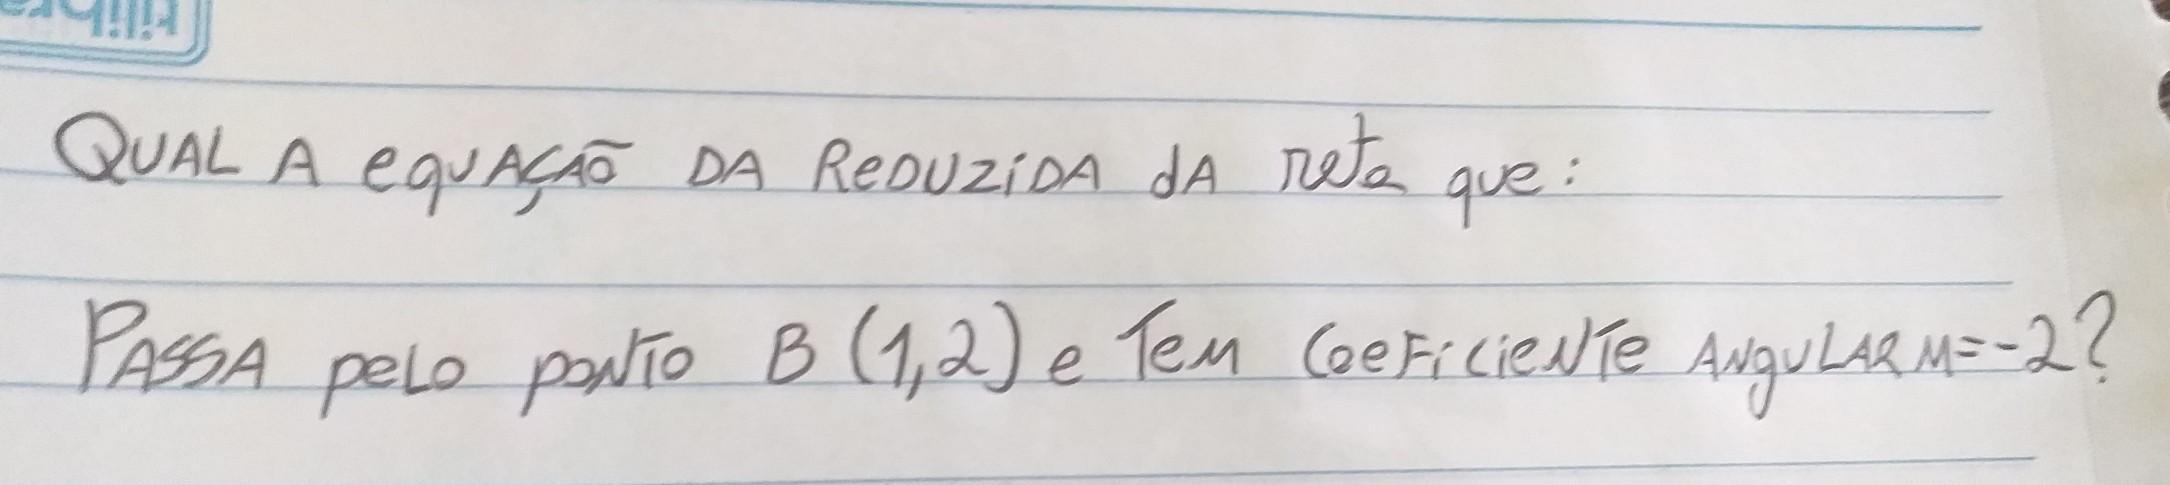 QUAL A equAÇÃO DA ReDUZiDA dA reta que:
PASSA peLo poNTo B (1,2) e Tem CoeFicieNTe ANguLAR M=-2?